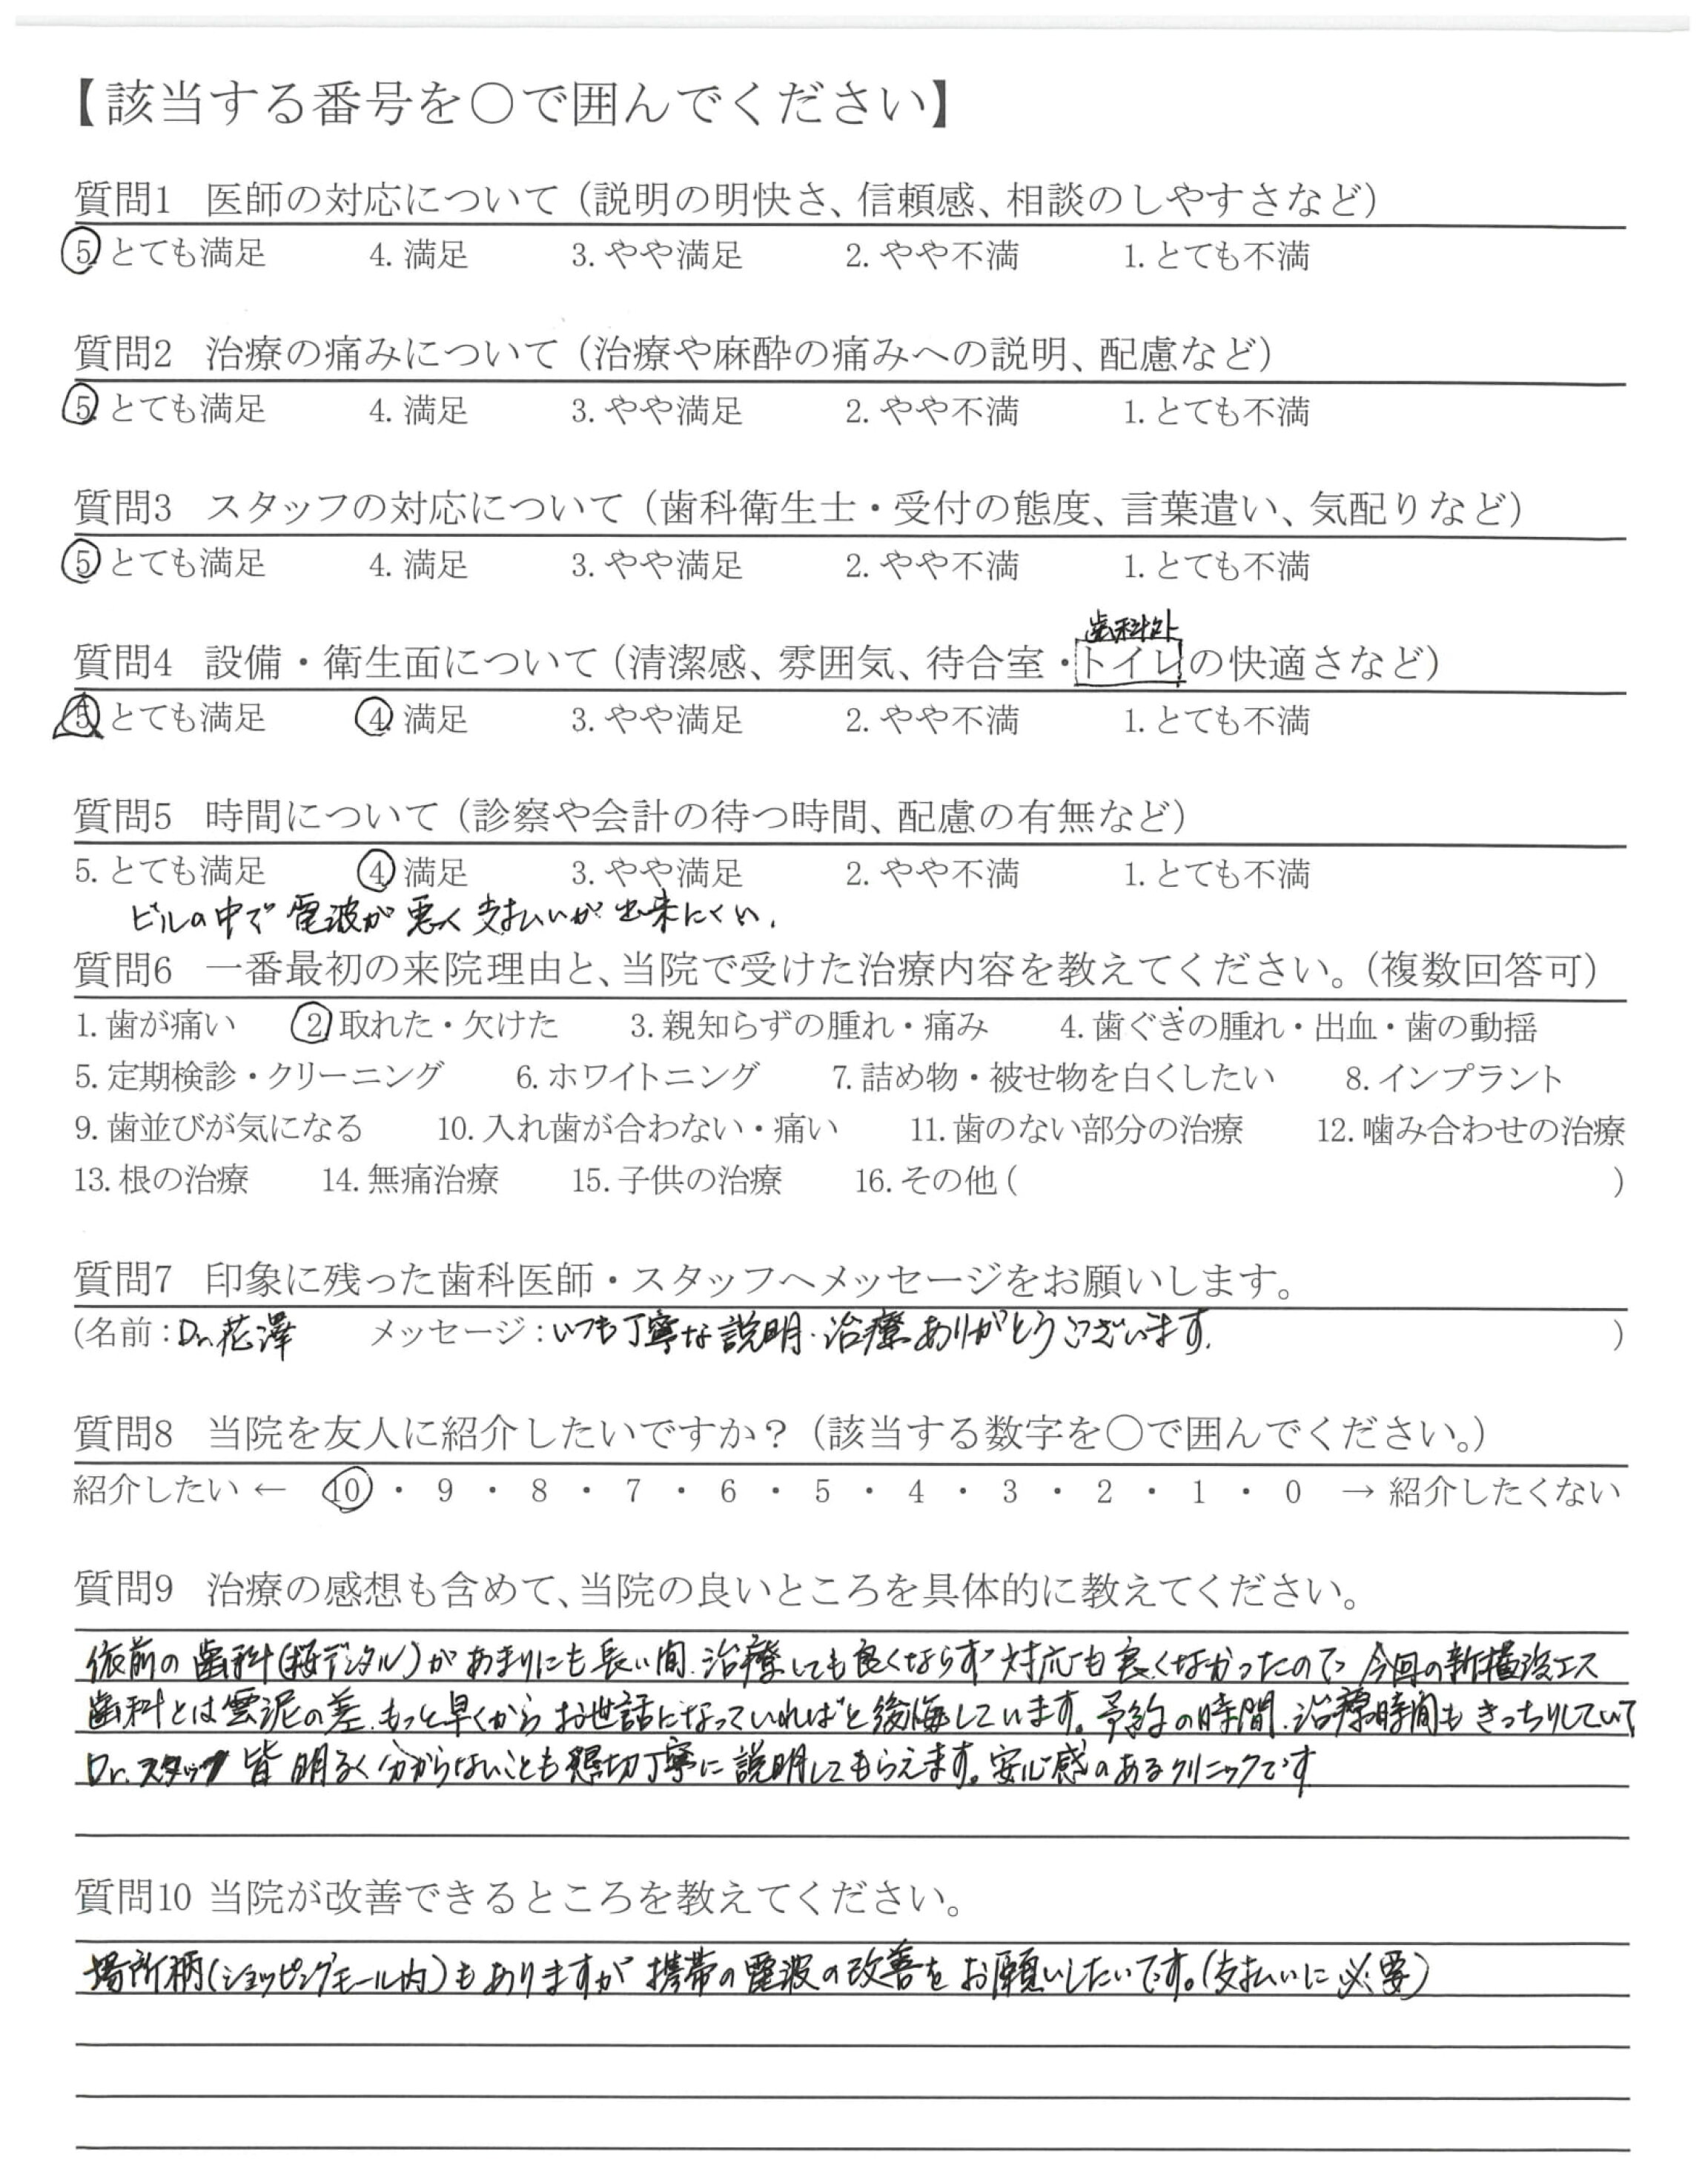 【該当する番号を〇で囲んでください】
質問1 医師の対応について（説明の明快さ、信頼感、相談のしやすさなど）
5. とても満足 4. 満足 3. やや満足 2. やや不満 1. とても不満
質問2 治療の痛みについて（治療や麻酔の痛みへの説明、配慮など）
5. とても満足 4. 満足 3. やや満足 2. やや不満 1. とても不満
質問3 スタッフの対応について（歯科衛生士・受付の態度、言葉遣い、気配りなど）
5. とても満足 4. 満足 3. やや満足 2. やや不満 1. とても不満
歯科外
質問4 設備・衛生面について（清潔感、雰囲気、待合室・トイレの快適さなど）
5. とても満足 4. 満足 3. やや満足 2. やや不満 1. とても不満
質問5 時間について（診察や会計の待つ時間、配慮の有無など）
5. とても満足 4. 満足 3. やや満足 2. やや不満 1. とても不満
ビルの中で電波が悪く支払いが出来にくい.
質問6 一番最初の来院理由と、当院で受けた治療内容を教えてください。（複数回答可）
1. 歯が痛い 2. 取れた・欠けた 3. 親知らずの腫れ・痛み 4. 歯ぐきの腫れ・出血・歯の動揺
5. 定期検診・クリーニング 6. ホワイトニング 7. 詰め物・被せ物を白くしたい 8. インプラント
9. 歯並びが気になる 10. 入れ歯が合わない・痛い 11. 歯のない部分の治療 12. 噛み合わせの治療
13. 根の治療 14. 無痛治療 15. 子供の治療 16. その他 ( )
質問7 印象に残った歯科医師・スタッフへメッセージをお願いします。
(名前：Dr.花澤 メッセージ：いつも丁寧な説明・治療ありがとうございます. )
質問8 当院を友人に紹介したいですか？（該当する数字を〇で囲んでください。）
紹介したい ← 10 ・ 9 ・ 8 ・ 7 ・ 6 ・ 5 ・ 4 ・ 3 ・ 2 ・ 1 ・ 0 → 紹介したくない
質問9 治療の感想も含めて、当院の良いところを具体的に教えてください。
依前の歯科(桜デンタル)があまりにも長い間、治療しても良くならず対応も良くなかったので今回の新横浜エス
歯科とは雲泥の差、もっと早くからお世話になっていればと後悔しています。予約の時間、治療時間もきっちりしていて
Dr.スタッフ皆明るく分からないことも懇切丁寧に説明してもらえます。安心感のあるクリニックです
質問10 当院が改善できるところを教えてください。
場所柄(ショッピングモール内)もありますが携帯の電波の改善をお願いしたいです。(支払いに必要)